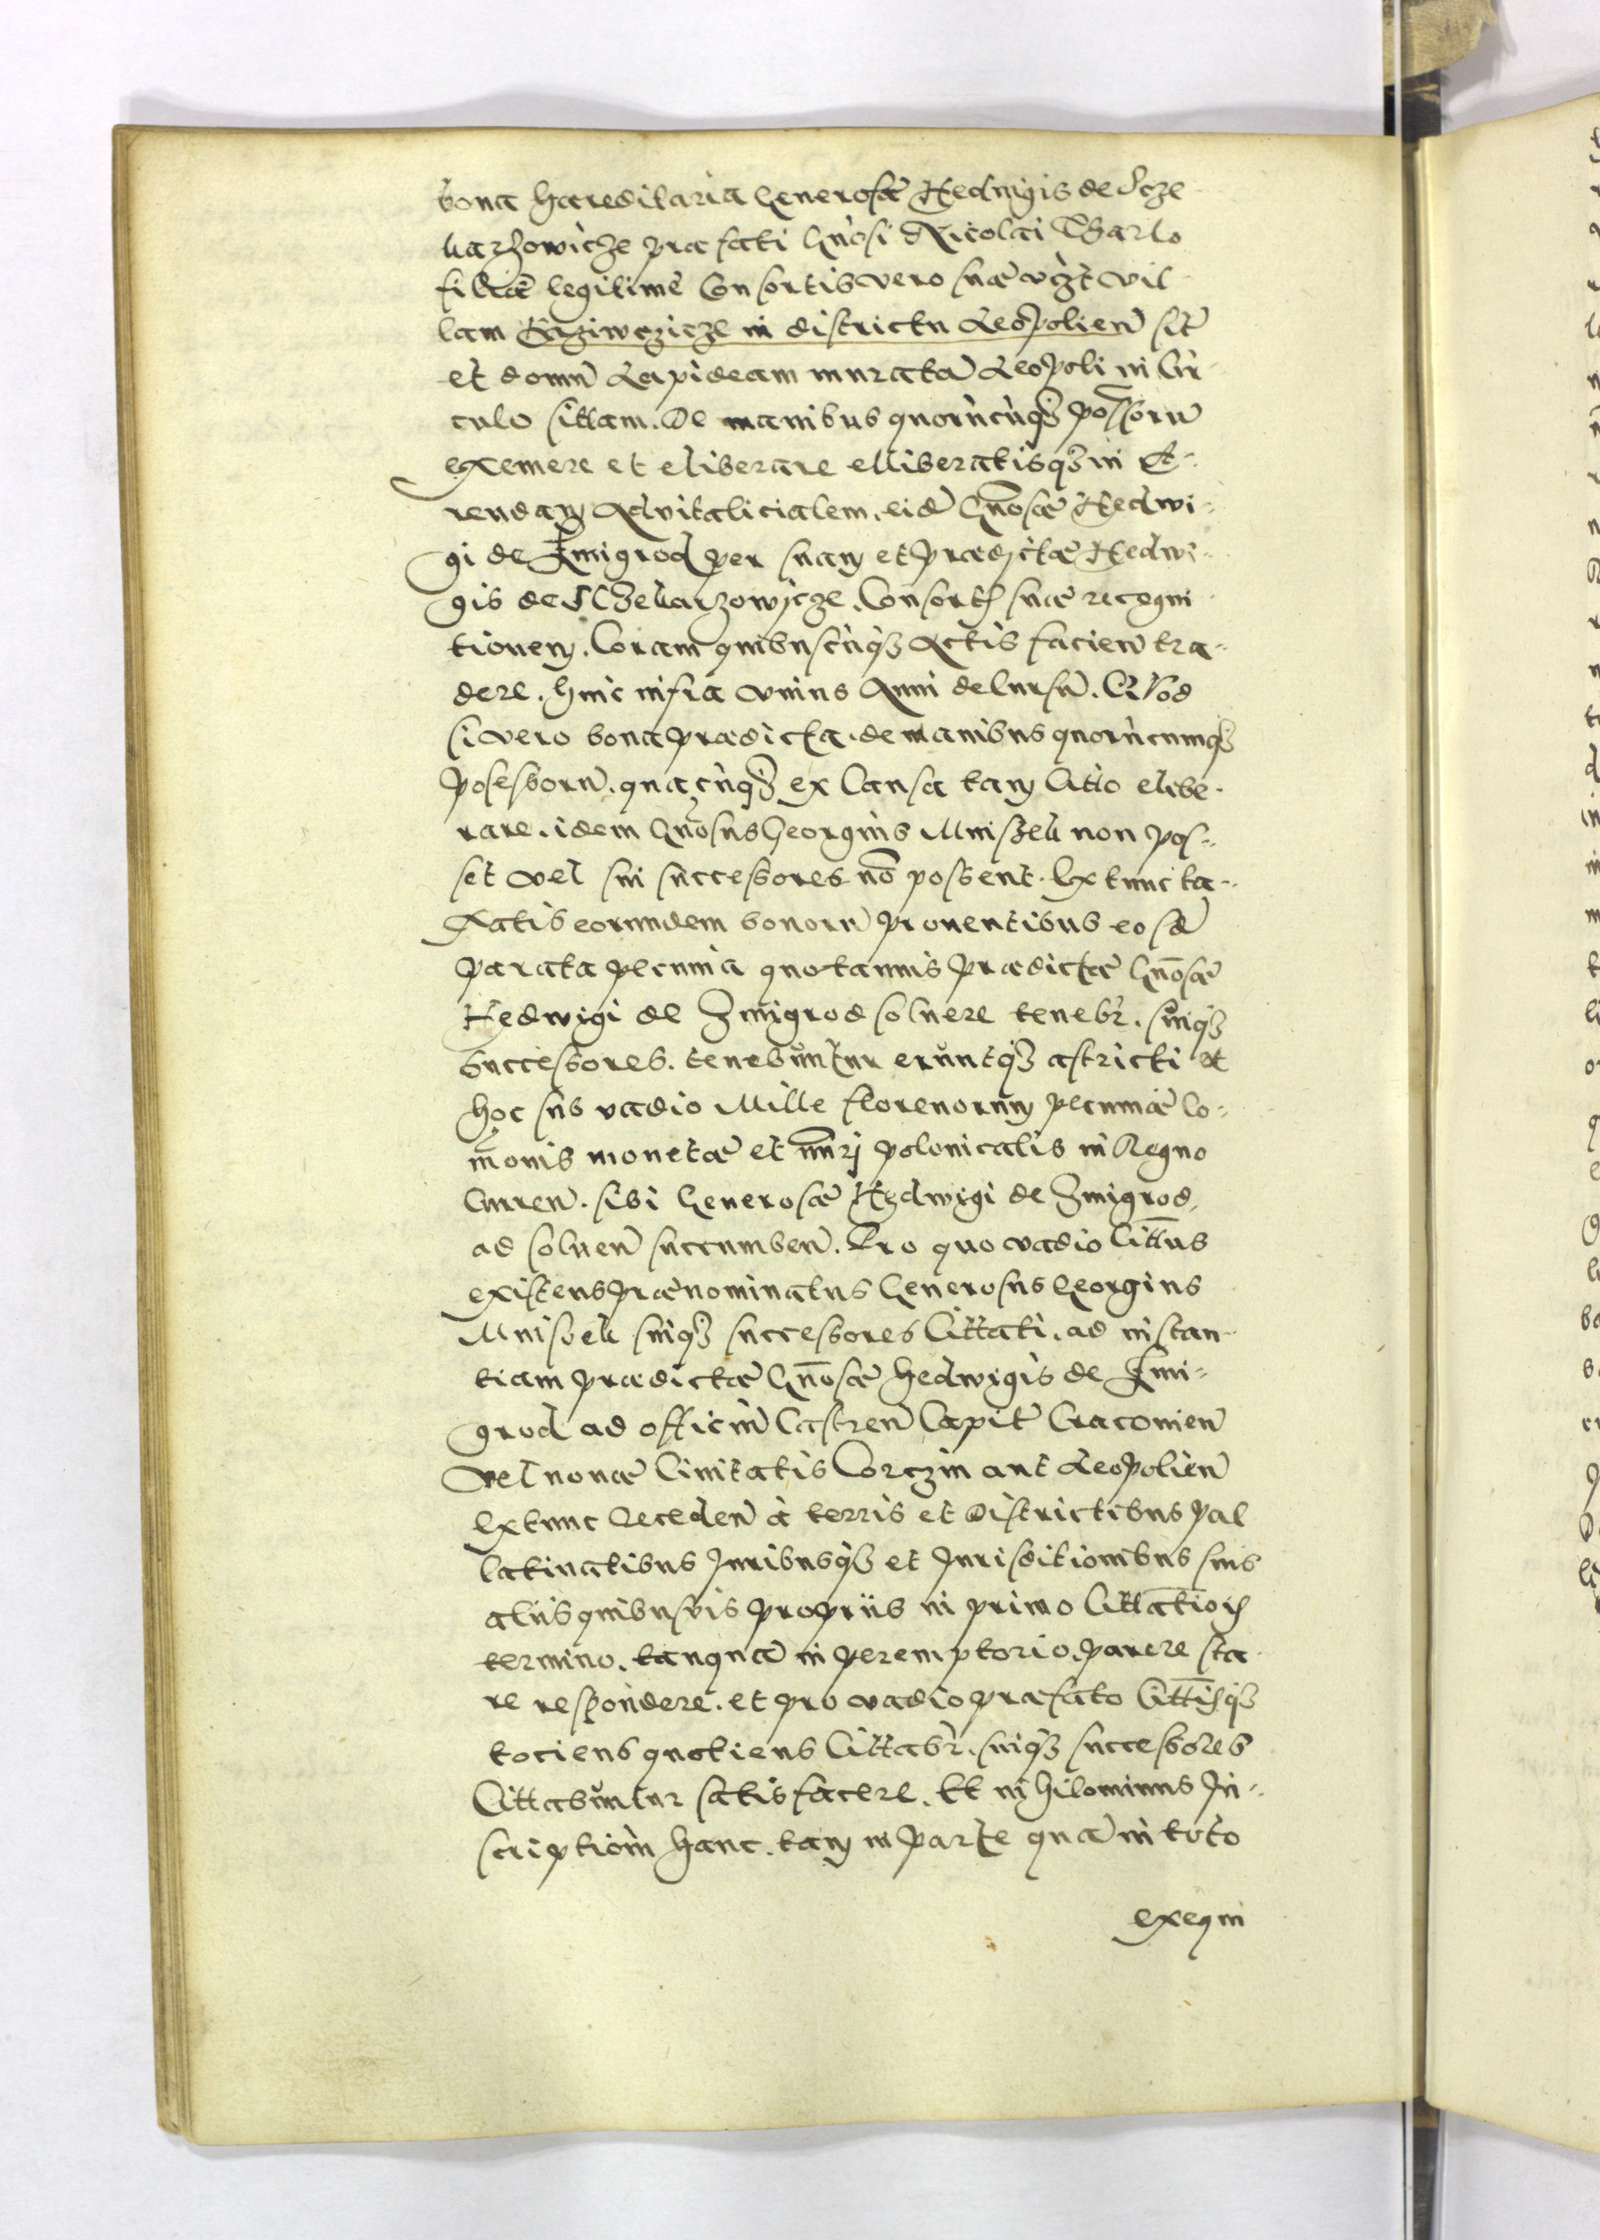 bona haereditaria Generosae Hedvigis de Scze
karzowicze praefati Gnosi Nicolai Tharlo
filiae legitime Consortis vero suae vigt vil
lam Krziwczicze in districtu Leopolien sit
et domu Lapideam murata Leopoli in Cir
culo sittam. De manibus quorucuq3 possoru
eximere et eliberare elliberatisq3 in A-
rendam Advitalicialem. eid Gnosae Hedwi-
gi de Zmigrod per suam et praedictae Hedwi-
gis de Sczekarzowicze. Consort suae recogni
tionem. Coram quibuscuq3 Actis facien tra-
dere. hinc infra unius Anni decursu. Quod
si vero bona praedicta. de manibus quorucumq3
possessoru. quacuq3 ex Causa tam Citto elibe-
rare. idem Gnosus Georgius Mniszek non pos-
set vel sui successores no possent. Extunc ta-
xatis eorundem bonoru proventibus eosd
parata pecunia quotannis praedictae Gnosae
Hedwigi de Zmigrod solvere tenebr. suiq3
successores. tenebuntur eruntq3 astricti et
hoc sub vadio Mille florenorum pecuniae Co-
monis monetae et nuri polonicalis in Regno
Curren. sibi Generosae Hedwigi de Zmigrod.
ad solven succumben. Pro quo vadio Cittus
existens praenominatus Generosus Georgius
Mnisek suiq3 successores Cittati. ad instan-
tiam praedictae Gnosae hedwigis de Zmi-
grod ad officiu Castren Capit Cracovien
vel novae Civitatis Corczin aut Leopolien
Extunc Receden a terris et Districtibus pal
latinatibus Juribusq3 et Jurisditionibus suis
aliis quibusvis propriis in primo Cittationis
termino. tanqua in peremptorio. parere sta
re respondere. et pro vadio praefato Cittusq3
tociens quotiens Cittabr. suiq3 successores
Cittabuntur satisfacere. Et nihilominus In-
scriptiom hanc. tam in parte qua in toto
exequi